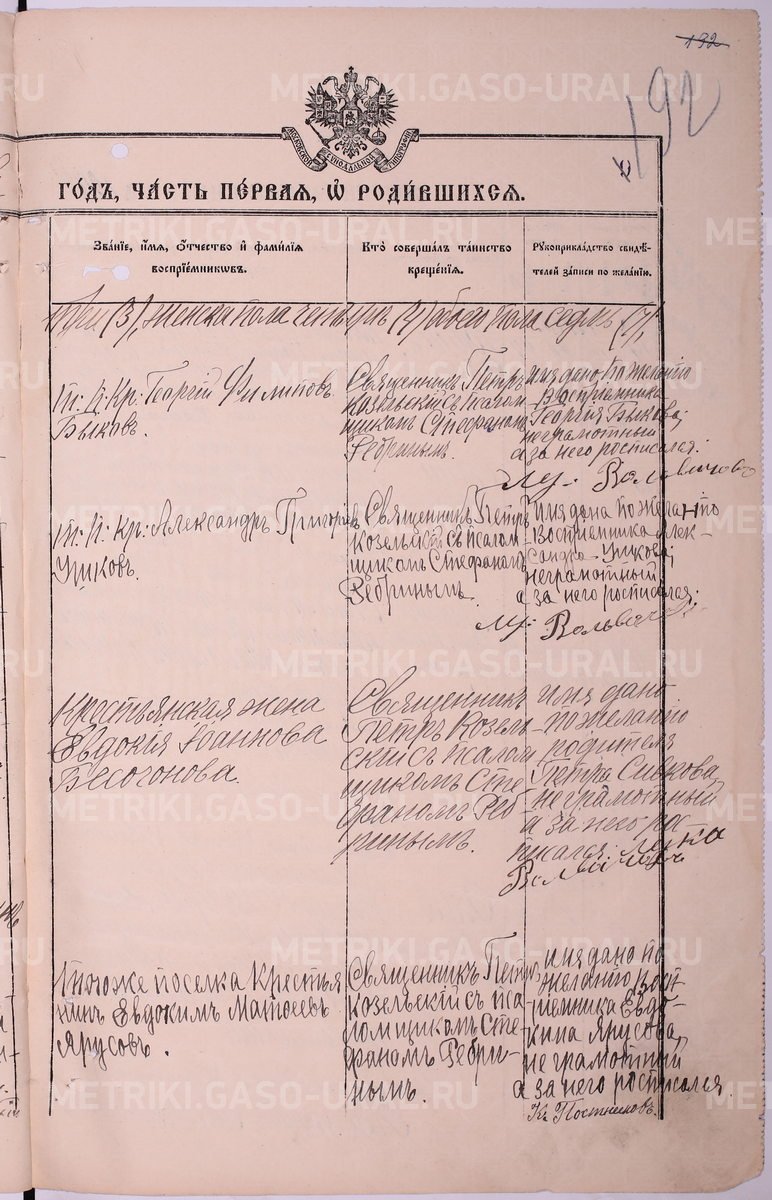 132
192
МОСКОВСКОЙ СѴНОДАЛЬНОЙ ТИПОГРАФІИ
ГО́ДЪ, ЧА́СТЬ ПЕ́РВАЯ, Ѡ РОДИ́ВШИХСЯ.
ЗВА́НІЕ, И́МЯ, О́ТЧЕСТВО И ФАМИ́ЛІЯ
ВОСПРІЕ́МНИКОВЪ.
КТО̀ СОВЕРША́ЛЪ ТА́ИНСТВО
КРЕЩЕ́НІЯ.
РУКОПРИКЛА́ДСТВО СВИДѢ́-
ТЕЛЕЙ ЗА́ПИСИ ПО ЖЕЛА́НІЮ.
три (3), женска пола четыре (4) обоего пола седмь (7)
т: п: кр: Георгій Филиповъ
Быковъ.
Священникъ Петръ
Козельскій съ псалом-
щикомъ Стефаномъ
Ребринымъ.
имя дано по желанію
воспріемника
Георгія Быкова;
неграмотный
а за него росписался:
Лу:
т: п: кр: Александръ Григоріев
Уциковъ.
Священникъ Петръ
Козельскій съ псалом-
щикомъ Стефаномъ
Ребринымъ.
имя дано по желанію
воспріемника Алек-
сандра Уцикова;
неграмотный
а за него росписался:
Лу:
Крестьянская жена
Евдокія Іоаннова
Бесогонова.
Священникъ
Петръ Козель
скій съ псалом
щикомъ Сте
фаномъ Реб
ринымъ.
имя дано
по желанію
родителя
Петра Сивкова,
не грамотный
а за него ро-
писался: Лука
тогоже поселка Крестья
нинъ Евдокимъ Матѳеевъ
Ярусовъ.
Священникъ Петръ
Козельскій съ пса
ломщикомъ Сте
фаномъ Ребри-
нымъ.
имя дано по
желанію восп
ріемника Евдо-
кима Ярусова,
не грамотный
а за него росписался
К. Постниковъ.
METRIKI.GASO-URAL.RU